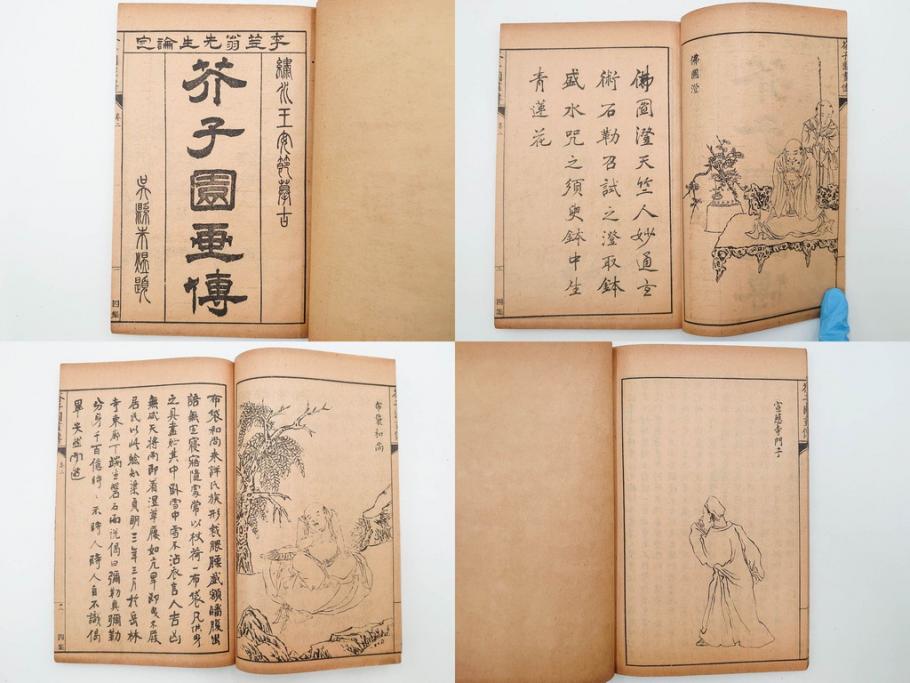 李笠翁先生論定
繡水王安節摹古
芥子園畫傳
吳縣朱湿題
卷二
四集
佛圖澄
佛圖澄天竺人妙通玄
術石勒召試之澄取鉢
盛水咒之須臾鉢中生
青蓮花
四集
布袋和尚
布袋和尚未詳氏族形裁腲脮蹙額皤腹出
語無定寢卧隨處常以杖荷一布袋凡供身
之具盡於其中卧雪中雪不沾衣言人吉凶
無忒天將雨即着濕草屨如亢旱即曳木屐
居民以此驗知梁貞明三年三月於岳林
寺東廊下端坐磐石而說偈曰彌勒真彌勒
分身千百億時時示時人時人自不識偈
畢安然而逝
二
四集
宣慈寺門子
芥子園畫傳